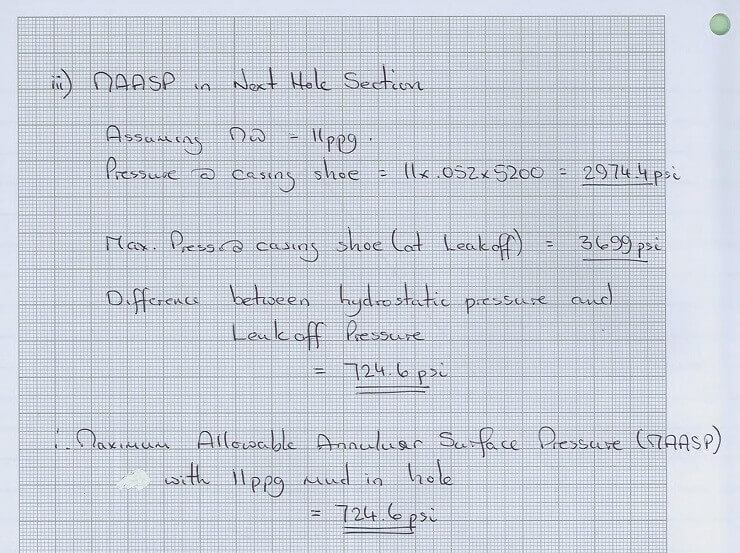 iii) MAASP in Next Hole Section
Assuming MW = 11ppg.
Pressure @ casing shoe = 11x.052x5200 = 2974.4psi
Max. Press@ casing shoe (at Leakoff) = 3699psi
Difference between hydrostatic pressure and
Leakoff Pressure
= 724.6psi
∴ Maximum Allowable Annuluar Surface Pressure (MAASP)
with 11ppg mud in hole
= 724.6psi